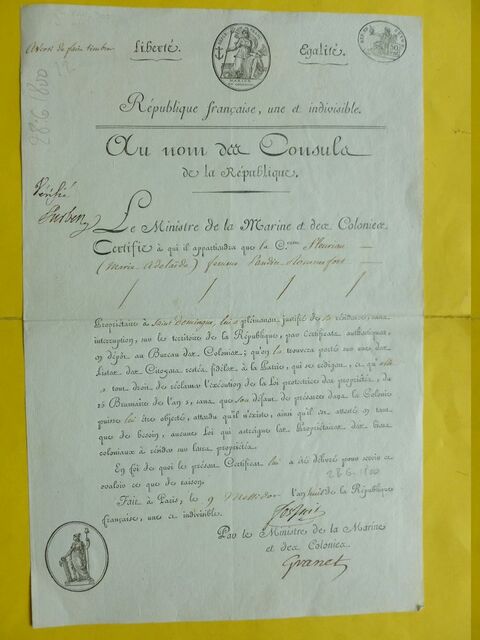 Liberté.
Egalité.
MARINE
28-6-1800
République française, une et indivisible.
Au nom des Consuls
de la République.
Vérifié
Le Ministre de la Marine et des Colonies
Certifie à qui il appartiendra que la C.enne Fleuriau
(Marie Adelaïde) femme
Propriétaire à Saint Domingue, lui a pleinement justifié de sa résidence, sans
interruption, sur le territoire de la République, par Certificats authentiques,
en dépôt au Bureau des Colonies; qu'on la trouvera porté sur une des
Listes des Citoyens restés fidèles à la Patrie, qui se rédigent, et qu'elle
a tout droit de réclamer l'exécution de la Loi protectrice des propriétés, du
25 Brumaire de l'an 3, sans que son défaut de présence dans la Colonie
puisse lui être objecté, attendu qu'il n'existe, ainsi qu'il en atteste en tant
que de besoin, aucune Loi qui astreigne les Propriétaires des biens
coloniaux à résider sur leurs propriétés.
En foi de quoi le présent Certificat lui a été délivré pour servir et
valoir ce que de raison.
28-6-1800
Fait à Paris, le 9 Messidor l'an huit de la République
française, une et indivisible.
Forfait
Par le Ministre de la Marine
et des Colonies
Granet